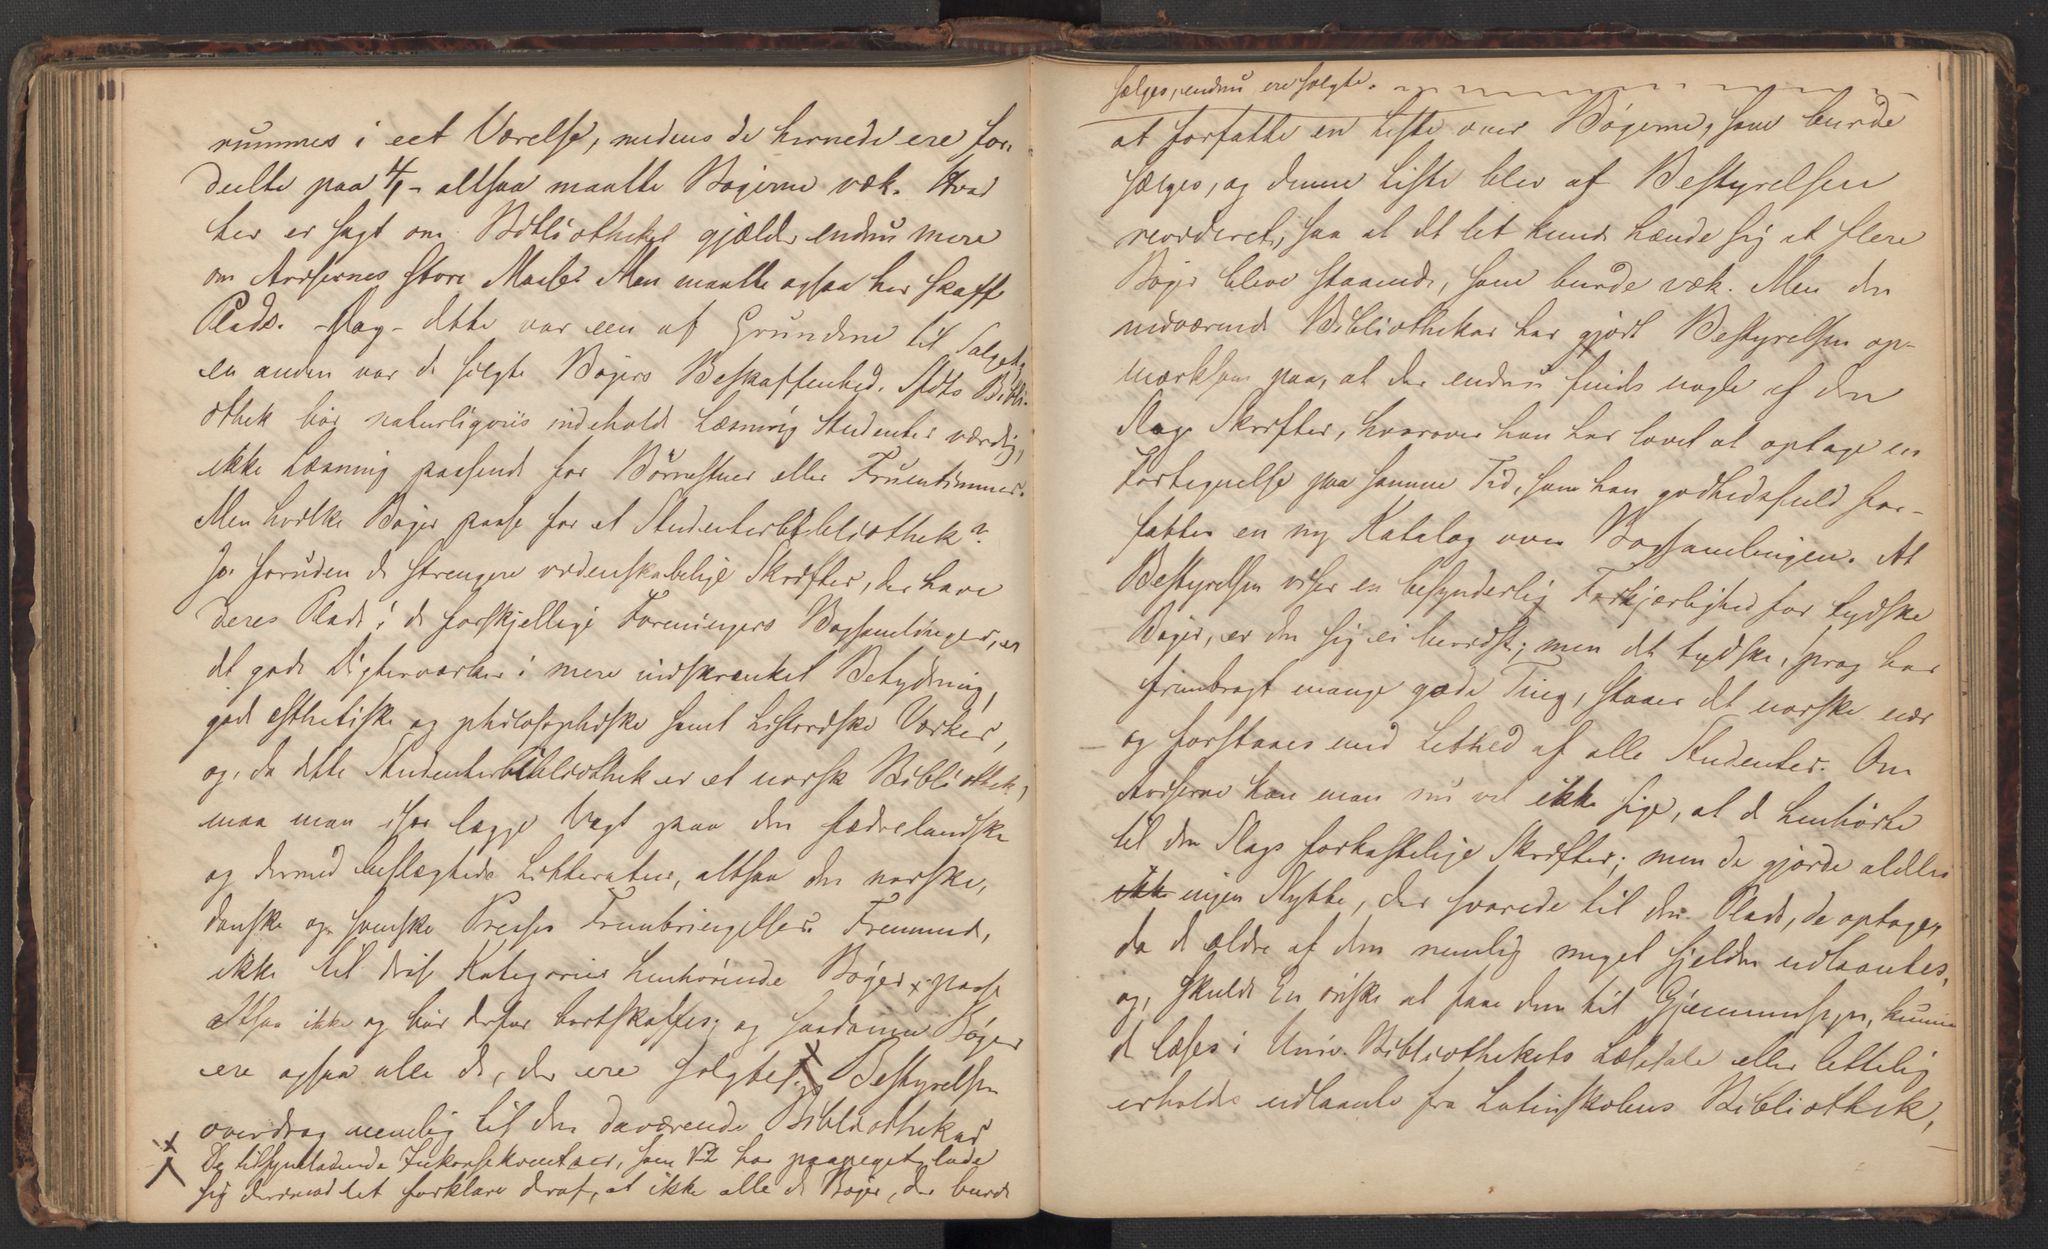 rummes i eet Værelse, medens de hernede ere for-
deelte paa 4/, - altsaa maatte Bøgerne væk. Hvad
her er sagt om Bibliotheket gjælder endnu mere
om Avisernes store Masse. Man maatte ogsaa her skaffe
Plads. - Dog - dette var een af Grundene til Salget,
en anden var de solgte Bøgers Beskaffenhed. Sfdts Bibli-
othek bør naturligviis indeholde Læsning Studenter værdig,
ikke Læsning passende for Børnestuer eller Fruentimmer.
Men hvilke Bøger passe for et Studenterbibliothek?
Jo foruden de strengere videnskabelige Skrifter, der have
deres Plads i de forskjellige Foreningers Bogsamlinger, er
det gode Digterværker i mere indskrænket Betydning,
gode esthetiske og philosophiske samt historiske Værker,
og, da dette Studenterbibliothek er et norsk Bibliothek,
maa man især lægge Vægt paa den fædrelandske
og dermed beslægtede Litteratur, altsaa den norske,
danske og svenske Presses Frembringelser. Fremmede,
ikke til disse Kategorier henhørende Bøger x passe
altsaa ikke og bør derfor bortskaffes; og saadanne Bøger
ere ogsaa alle de, der ere solgte. x Bestyrelsen
overdrog nemlig til den daværende Bibliothekar
x De tilsyneladende Inkonsekventser, som V.L. har paapeget, lade
sig derimod let forklare deraf, at ikke alle de Bøger, der burde
sælges, endnu ere solgte.
at forfatte en Liste over Bøgerne, som burde
sælges, og denne Liste blev af Bestyrelsen
revideret, saa at det let kunde hænde sig at flere
Bøger bleve staaende, som burde væk. Men den
nuværende Bibliothekar har gjort Bestyrelsen op-
mærksom paa, at der endnu findes nogle af den
Slags Skrifter, hvorover han har lovet at optage en
Fortegnelse paa samme Tid, som han godhedsfuld for-
fatter en ny Katalog over Bogsamlingen. At
Bestyrelsen viser en besynderlig Forkjærlighed for tydske
Bøger, er den sig ei bevidst; men det tydske Sprog har
frembragt mange gode Ting, staaer det norske nær
og forstaaes med Lethed af alle Studenter. Om
Aviserne kan man nu vel ikke sige, at de henhørte
til den Slags forkastelige Skrifter; men de gjorde aldeles
ikke ingen Nytte, der svarede til den Plads, de optoge,
da de ældre af dem nemlig meget sjelden udlaantes,
og, skulde En ønske at faae dem til Gjennemsyn, kunne
de læses i Univ. Bibliothekets Læsesale eller lettelig
erholdes udlaante fra Latinskolens Bibliothek,